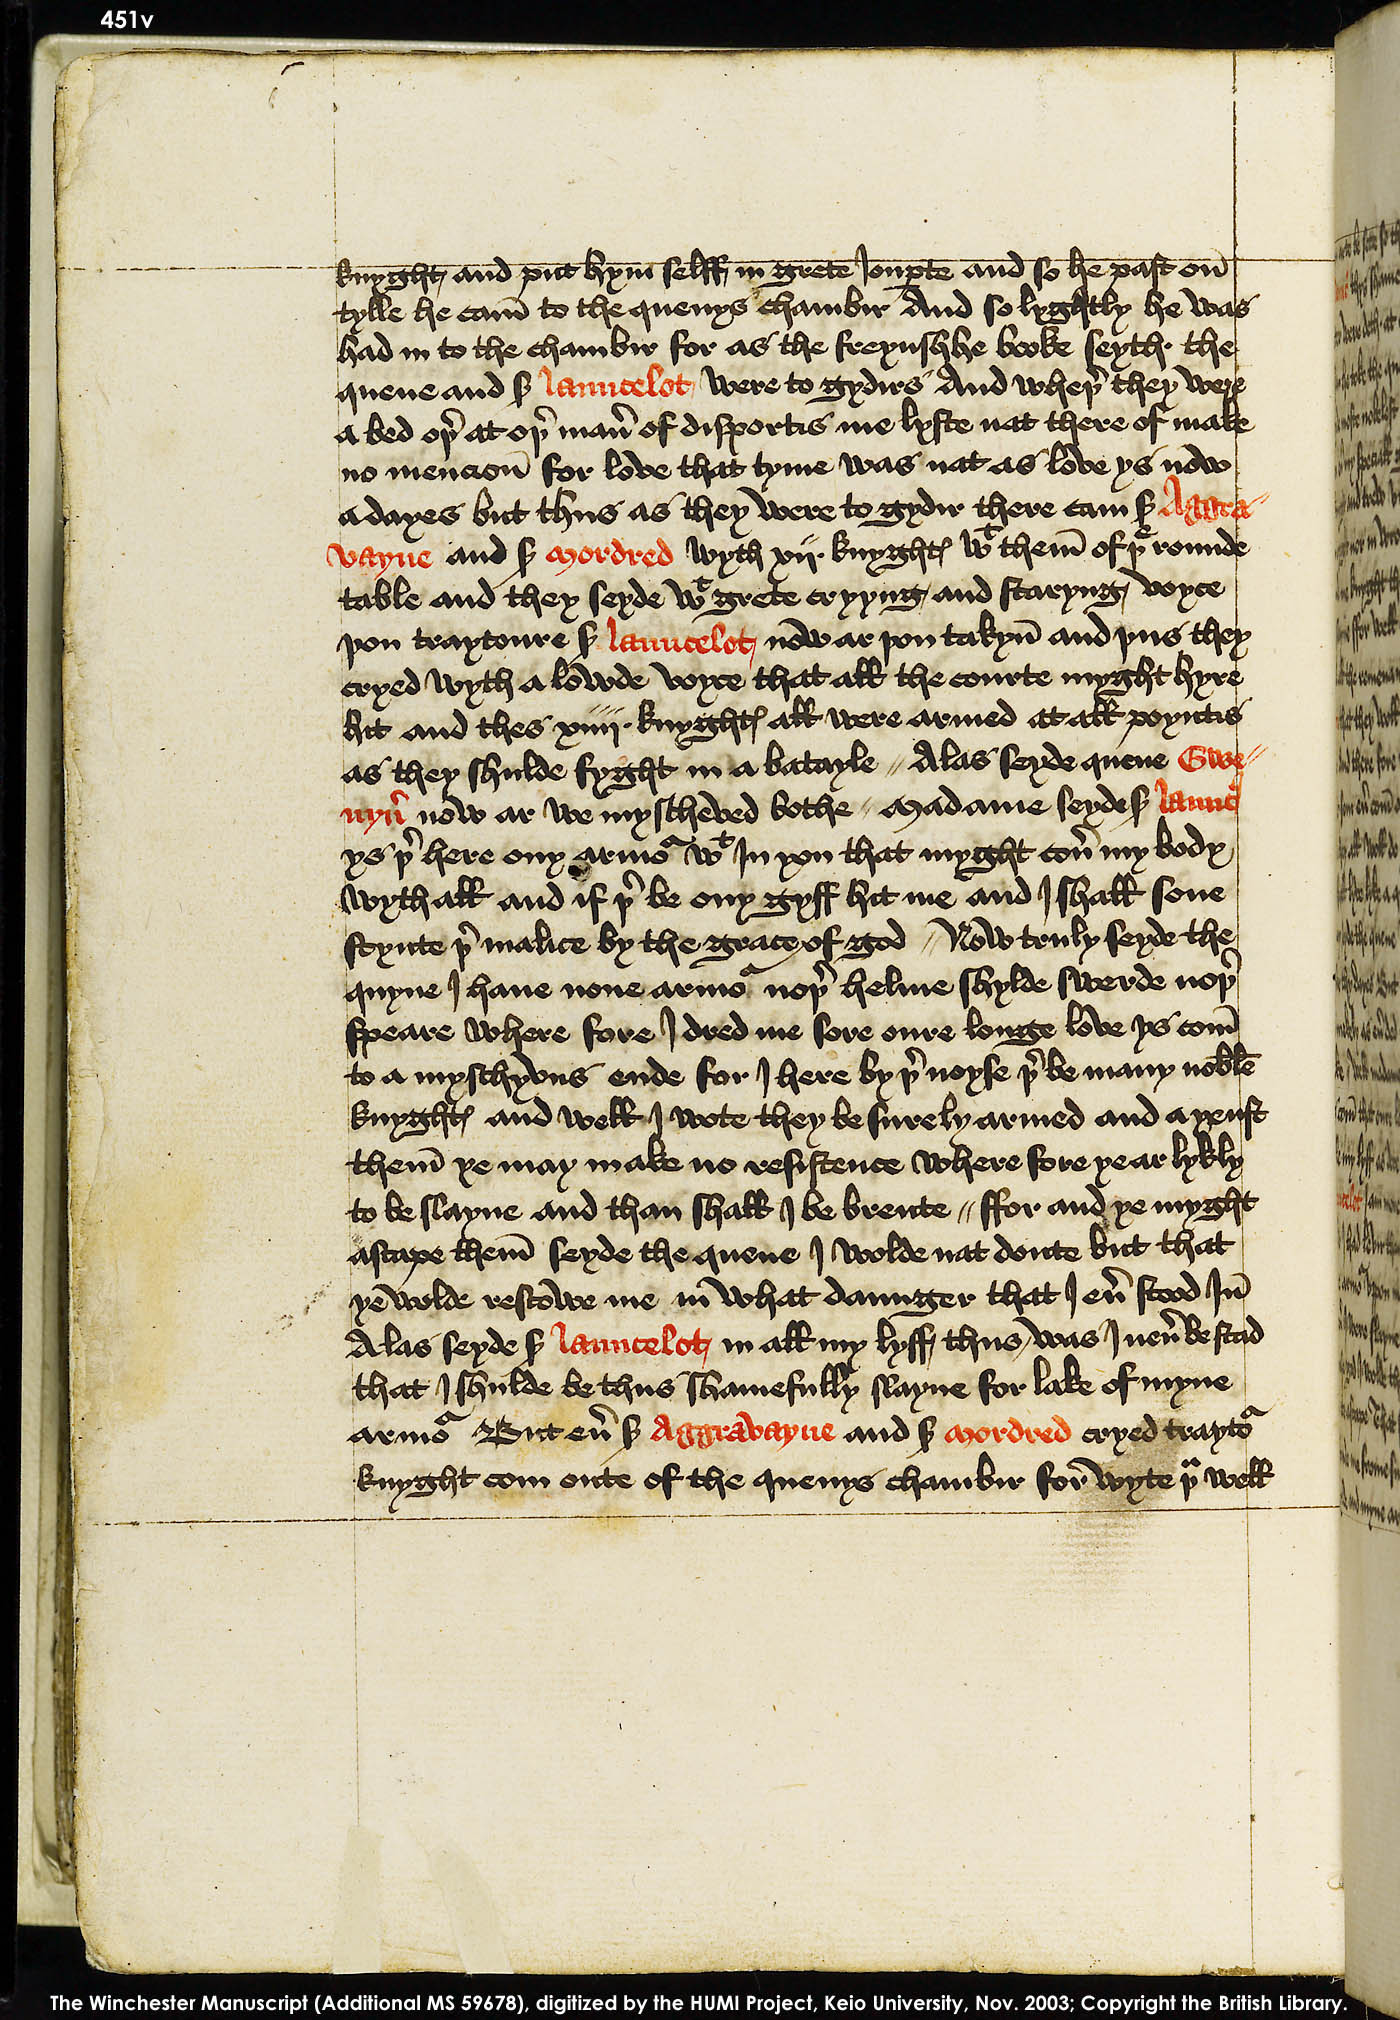 451v
knyght and put hym selff in grete Joupte and so he past on̄
tylle he cam̄ to the quenys chambir And so lyghtly he was
had in to the chambir for as the freynshhe booke seyth the
quene and s̉ launcelot were to gydirs And wheþ̉ they were
a bed oþ̉ at oþ̉ man̉ of disportis me lyste nat there of make
no mencion̄ for love that tyme was nat as love ys now
a dayes but thus as they were to gydir there cam s̉ Aggra//
vayne and s̉ mordred wyth xij knyghtꝭ wᵗ them̄ of þᵉ rounde
table and they seyde wᵗ grete cryyng and staryng voyce
þou traytoure s̉ launcelot now ar þou takyn̄ and þus they
cryed wyth a lowde voyce that all the courte myght hyre
hit and thes xiiij knyghtꝭ all were armed at all poyntis
as they shulde fyght in a batayle // Alas seyde quene Gwe//
nyū̉ now ar we myscheved bothe // Madame seyde s̉ launc̉
ys þ̉ here ony armoᵃ wᵗ In you that myght coủ my body
wyth all and if þ̉ be ony gyff hit me and I shall sone
stynte þ̉ malice by the grace of god // Now truly seyde the
quyne I haue none armoᵃ noþ̉ helme shylde swerde noþ̉
speare where fore I dred me sore oure longe love ys com̄
to a myschyvus ende for I here by þ̉ noyse þ̉ be many noble
knyghtꝭ and well I wote they be surely armed and ayenst
them̄ ye may make no resistence where fore ye ar lykly
to be slayne and than shall I be brente // ffor and ye myght
ascape them̄ seyde the quene I wolde nat doute but that
ye wolde rescowe me in̄ what daunger that I eủ stood In̄
Alas seyde s̉ launcelot in all my lyff thus was I neủ bestad
that I shulde be thus shamefully slayne for lake of myne
armoᵃ But eủ s̉ Aggravayne and s̉ mordred cryed traytoᵃ
knyght com oute of the quenys chambir for wyte þᵘ well
The Winchester Manuscript (Additional MS 59678), digitized by the HUMI Project, Keio University, Nov. 2003; Copyright the British Library.